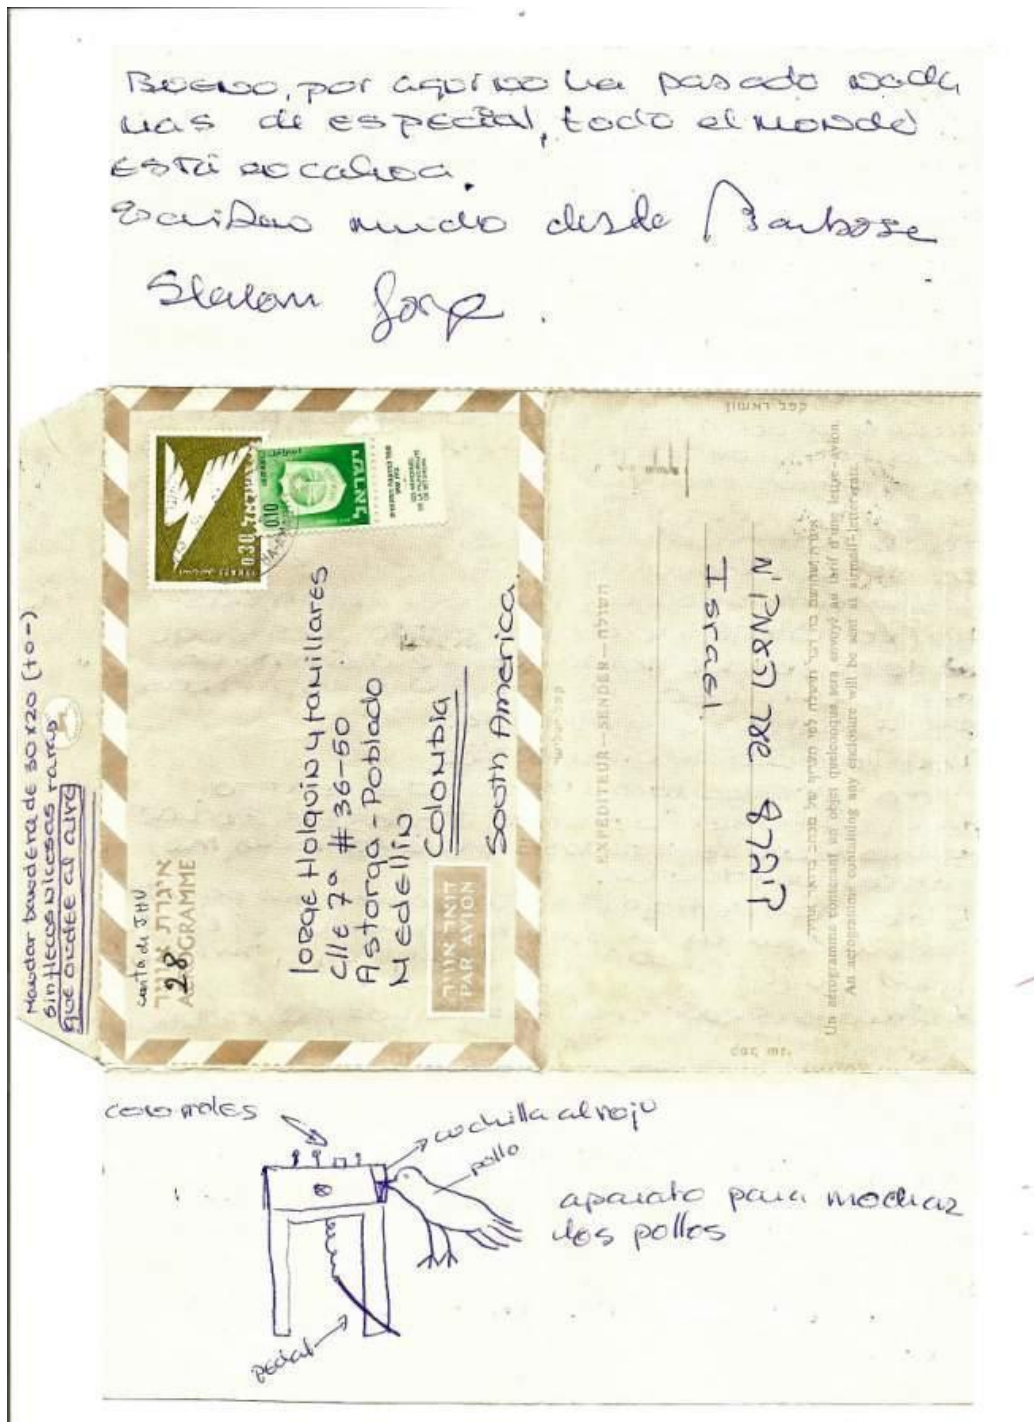 Bueno, por aquí no ha pasado nada
mas de especial, todo el mundo
está en calma.
Escriban mucho desde Barbosa
Shalom Jorge.
Mandar bandera de 30x20 (to-)
sin flecos ni cosas raras
que ondee al aire
carta de JHV
איגרת אויר
28
AEROGRAMME
ישראל 0.30
ישראל
0.10
Jorge Holguin y familiares
Clle 7ª # 36-50
Astorga - Poblado
Medellin
Colombia
South America
דואר אויר
PAR AVION
EXPEDITEUR—SENDER—השולח
קיבוץ שער העמקים
Israel.
Un aérogramme contenant un objet quelconque sera envoyé au tarif d'une lettre-avion.
An aerogramme containing any enclosure will be sent at airmail-letter rate.
controles
cuchilla al rojo
pollo
aparato para mochar
los pollos
pedal